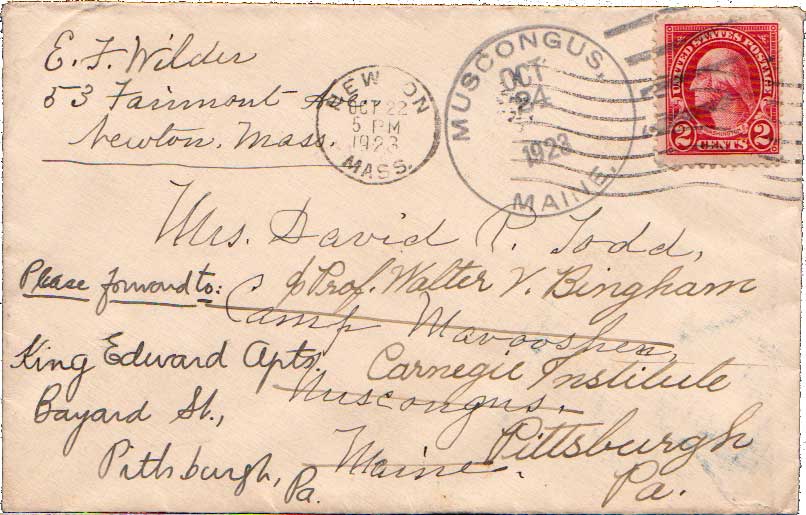 E. F. Wilder
53 Fairmont Ave.
Newton, Mass.
NEWTON
OCT 22
5 PM
1923
MASS.
MUSCONGUS,
OCT
24
1923
MAINE.
UNITED STATES POSTAGE
WASHINGTON
2 CENTS 2
Mrs. David P. Todd,
Please forward to:
c/o Prof. Walter V. Bingham
Camp Mavooshen,
King Edward Apts.
Carnegie Institute
Muscongus.
Bayard St.,
Pittsburgh
Pittsburgh,
Maine.
Pa.
Pa.